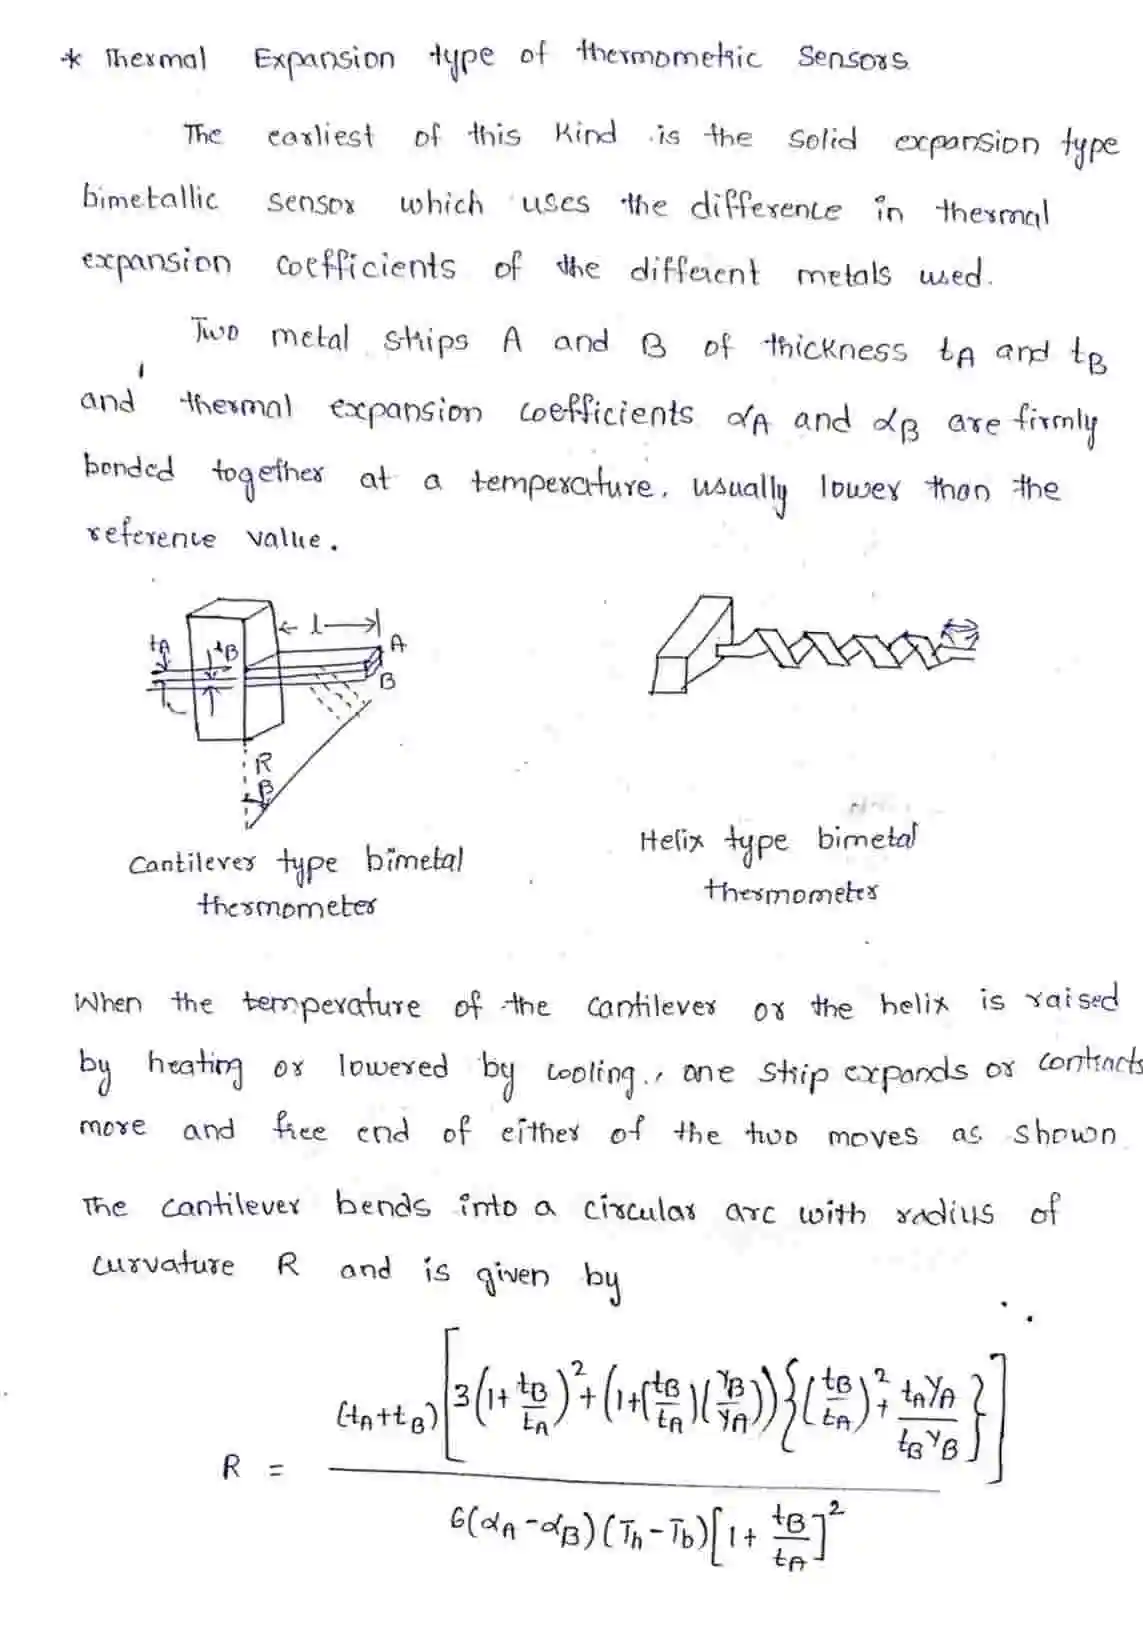 * Thermal Expansion type of thermometric Sensors.
The earliest of this Kind is the solid expansion type
bimetallic sensor which uses the difference in thermal
expansion coefficients of the different metals used.
Two metal strips A and B of thickness tA and tB
and thermal expansion coefficients αA and αB are firmly
bonded together at a temperature, usually lower than the
reference value.
← l → A
tA tB
B
R
β
Cantilever type bimetal
thermometer
Helix type bimetal
thermometer
When the temperature of the cantilever or the helix is raised
by heating or lowered by cooling, one strip expands or contracts
more and free end of either of the two moves as shown
The cantilever bends into a circular arc with radius of
curvature R and is given by
R = (tA+tB)[3(1+tB/tA)²+(1+(tB/tA)(YB/YA)){(tB/tA)²+tAYA/tBYB}] / 6(αA-αB)(Th-Tb)[1+tB/tA]²